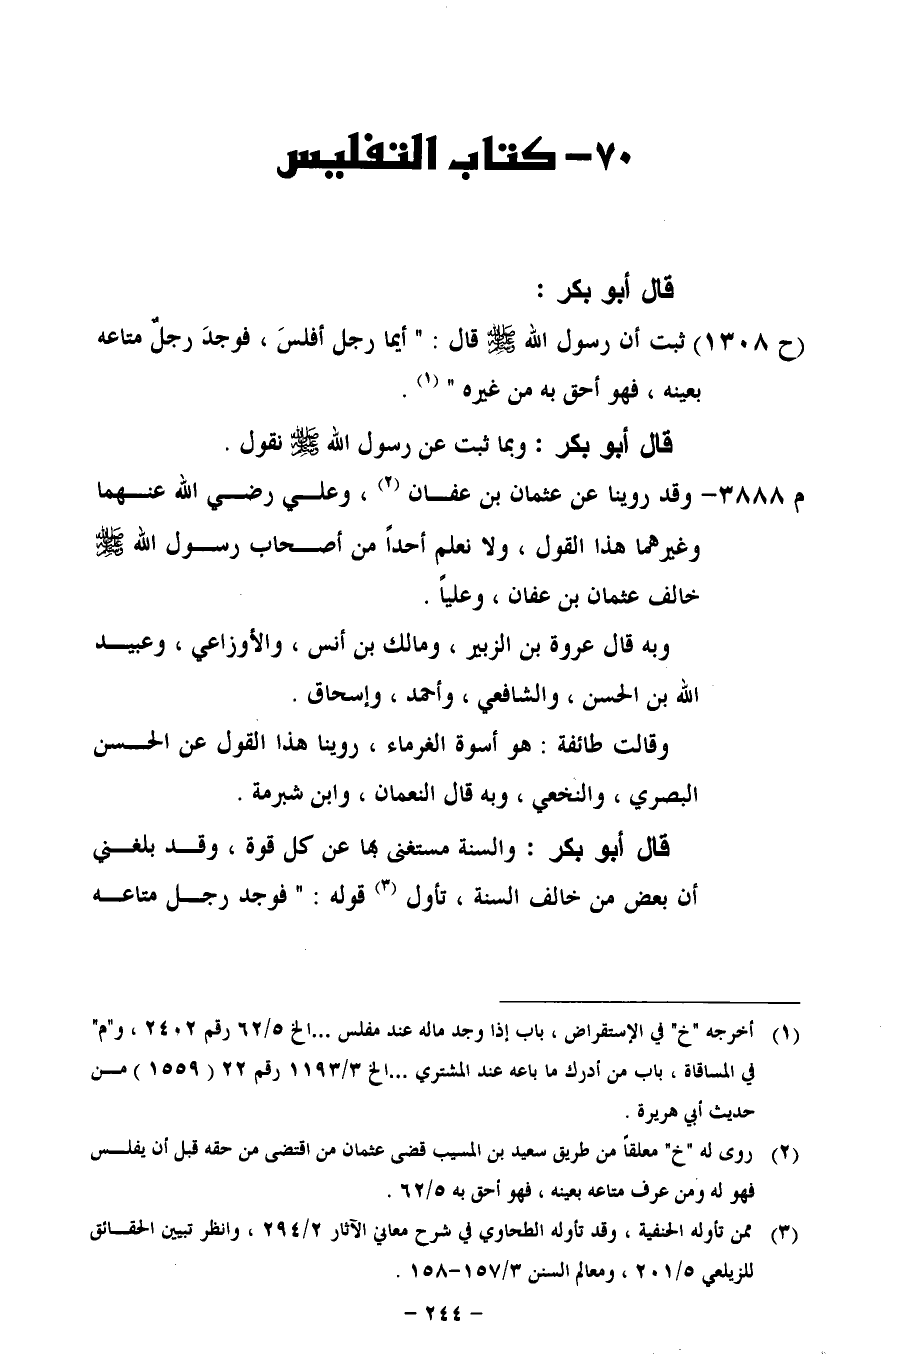 ٧٠- كتاب التفليس
قال أبو بكر :
(ح ١٣٠٨) ثبت أن رسول الله ﷺ قال : " أيما رجل أفلسَ ، فوجدَ رجلٌ متاعه
بعينه ، فهو أحق به من غيره " (١) .
قال أبو بكر : وبما ثبت عن رسول الله ﷺ نقول .
م ٣٨٨٨- وقد روينا عن عثمان بن عفان (٢) ، وعلي رضي الله عنهما
وغيرهما هذا القول ، ولا نعلم أحداً من أصحاب رسول الله ﷺ
خالف عثمان بن عفان ، وعلياً .
وبه قال عروة بن الزبير ، ومالك بن أنس ، والأوزاعي ، وعبيد
الله بن الحسن ، والشافعي ، وأحمد ، وإسحاق .
وقالت طائفة : هو أسوة الغرماء ، روينا هذا القول عن الحسن
البصري ، والنخعي ، وبه قال النعمان ، وابن شبرمة .
قال أبو بكر : والسنة مستغنى بها عن كل قوة ، وقد بلغني
أن بعض من خالف السنة ، تأول (٣) قوله : " فوجد رجل متاعه
(١) أخرجه "خ" في الإستقراض ، باب إذا وجد ماله عند مفلس ...الخ ٦٢/٥ رقم ٢٤٠٢ ، و"م"
في المساقاة ، باب من أدرك ما باعه عند المشتري ...الخ ١١٩٣/٣ رقم ٢٢ ( ١٥٥٩ ) من
حديث أبي هريرة .
(٢) روى له "خ" معلقاً من طريق سعيد بن المسيب قضى عثمان من اقتضى من حقه قبل أن يفلس
فهو له ومن عرف متاعه بعينه ، فهو أحق به ٦٢/٥ .
(٣) ممن تأوله الحنفية ، وقد تأوله الطحاوي في شرح معاني الآثار ٢٩٤/٢ ، وانظر تبيين الحقائق
للزيلعي ٢٠١/٥ ، ومعالم السنن ١٥٧/٣-١٥٨ .
- ٢٤٤ -